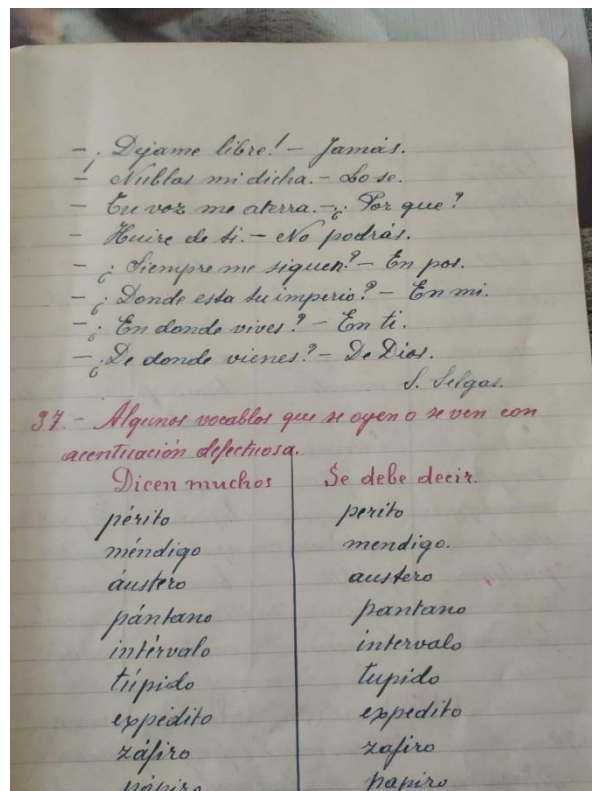 - ¡Dejame libre! - Jamás.
- Nublas mi dicha. - Lo se.
- Tu voz me aterra. - ¿Por que?
- Huire de ti. - No podrás.
- ¿Siempre me siguen? - En pos.
- ¿Donde esta tu imperio? - En mi.
- ¿En donde vives? - En ti.
- ¿De donde vienes? - De Dios.
S. Selgas.
37. - Algunos vocablos que se oyen o se ven con
acentuación defectuosa.
Dicen muchos Se debe decir.
périto perito
méndigo mendigo.
áustero austero
pántano pantano
intérvalo intervalo
túpido tupido
expédito expedito
záfiro zafiro
pápiro papiro